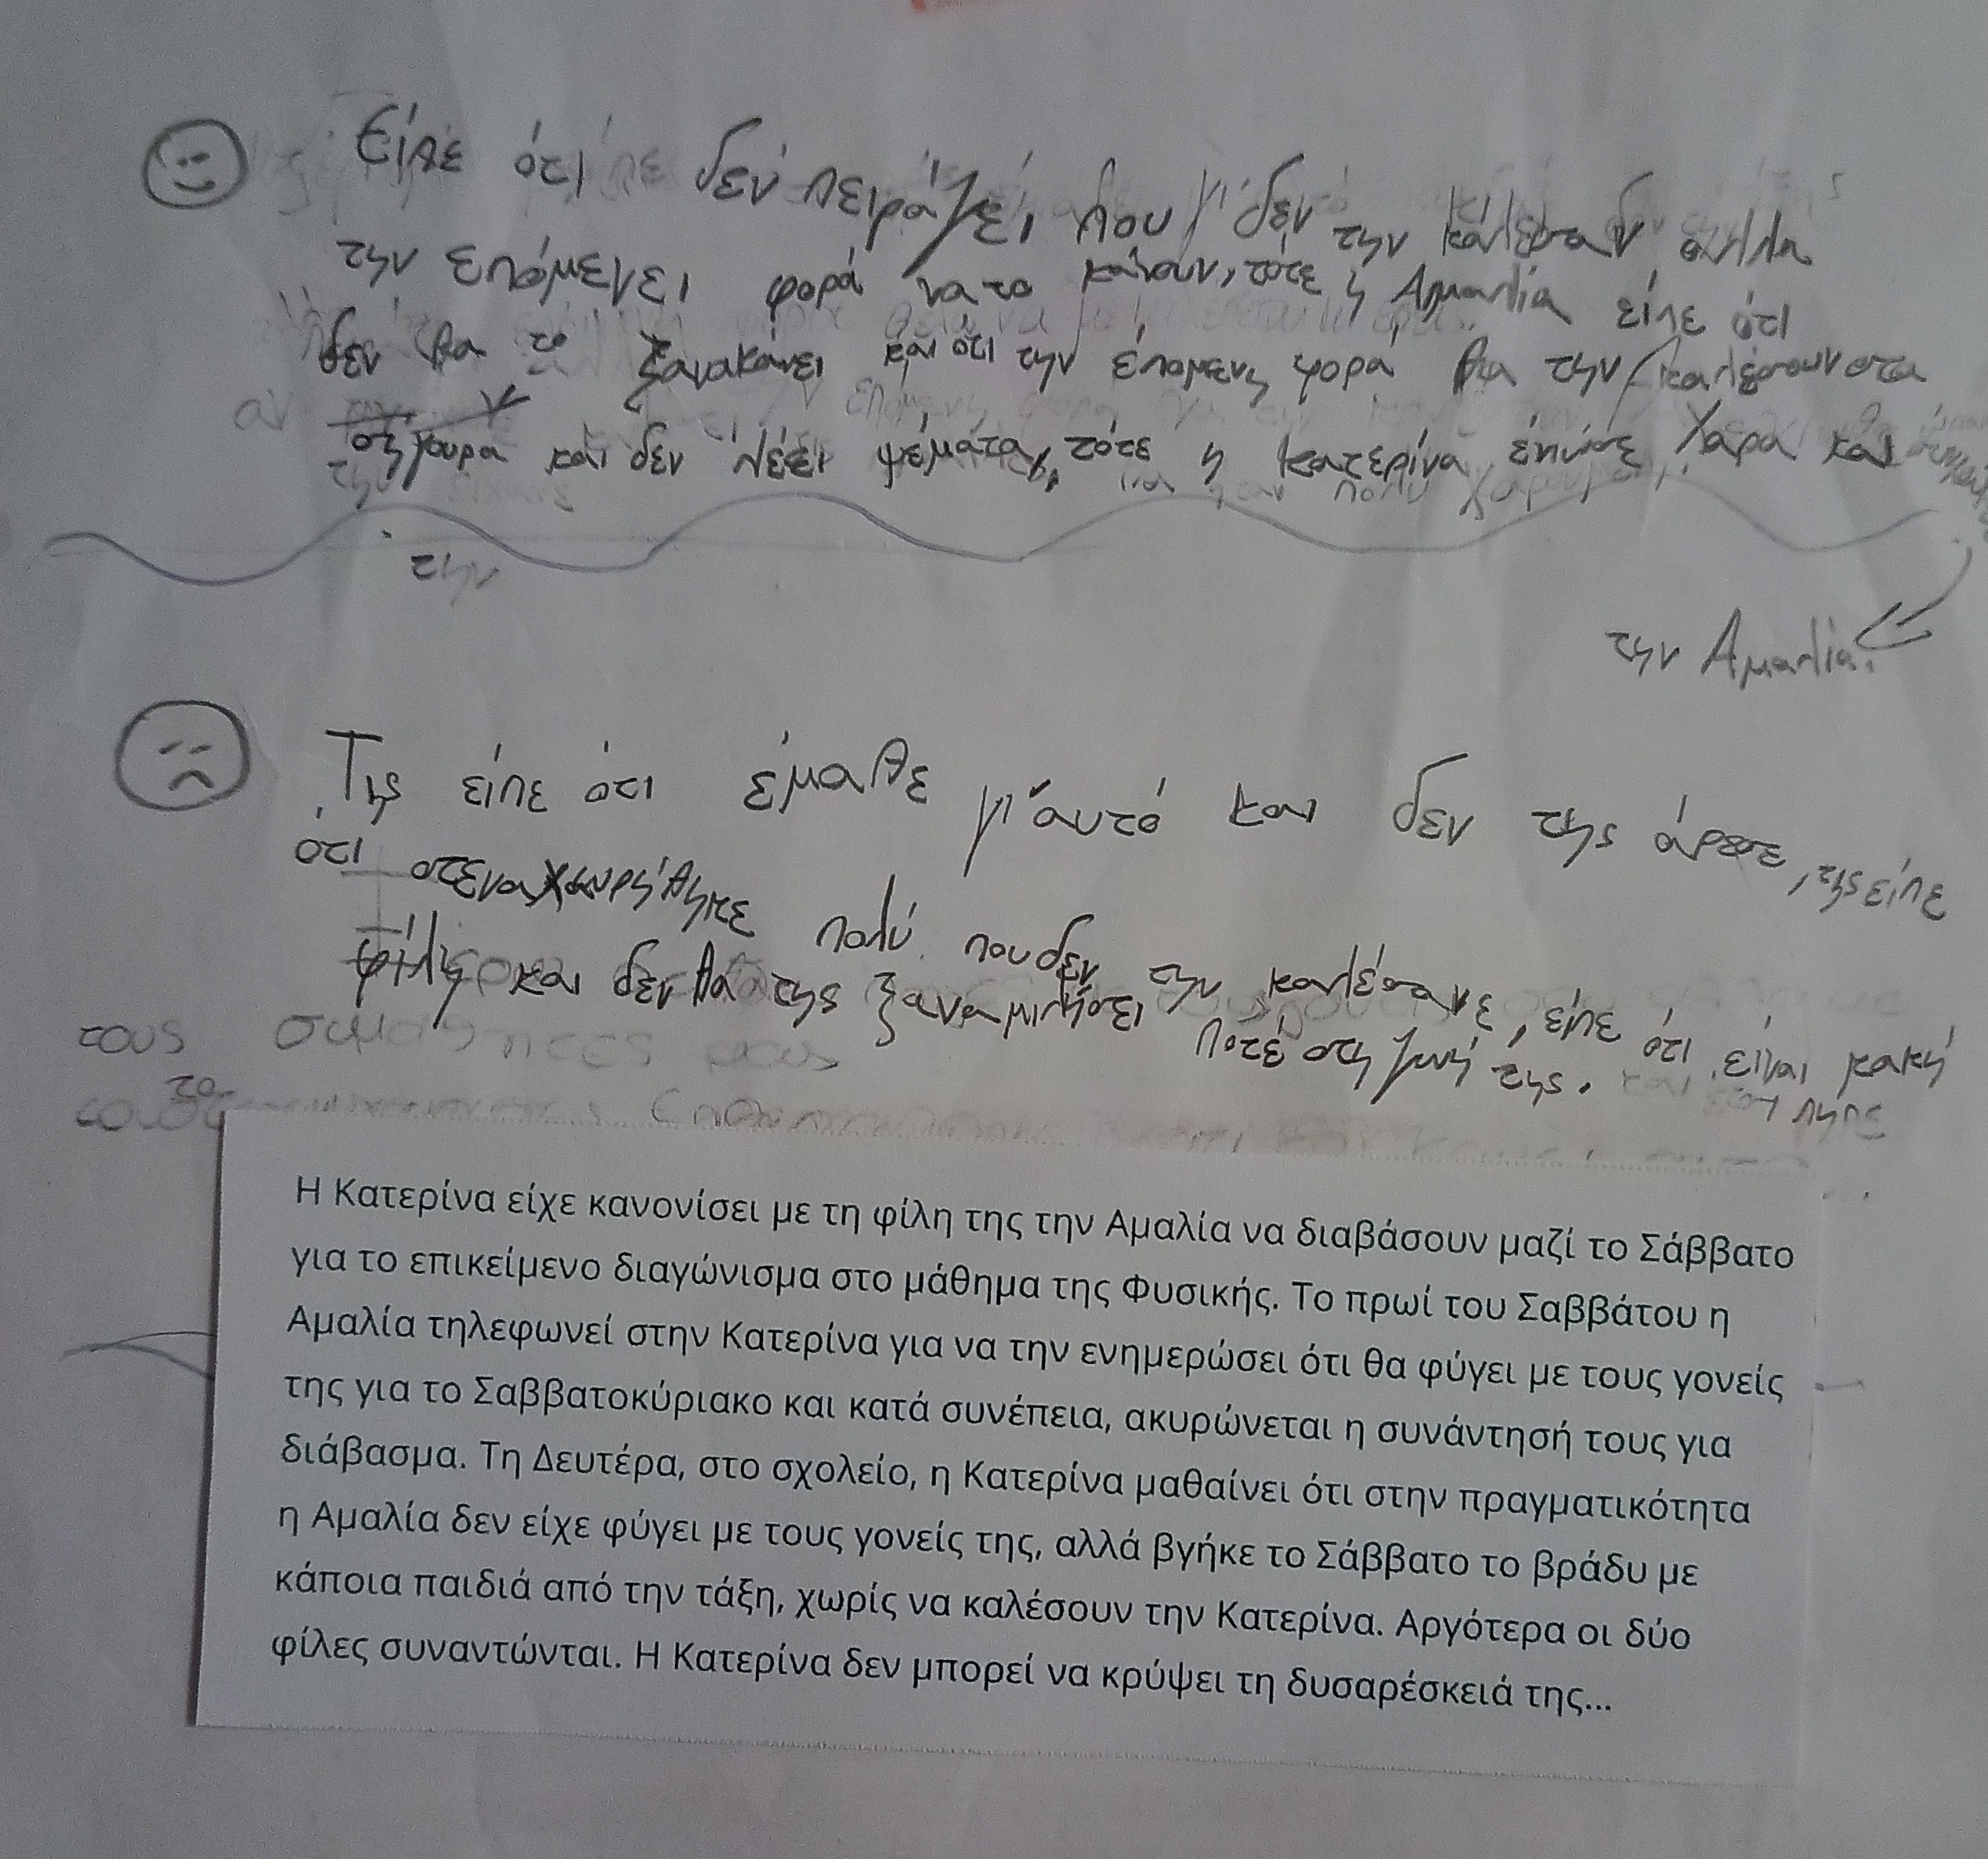 Είπε ότι δεν πειράζει που δεν την κάλεσαν αλλά
την επόμενει φορά να το κάνουν, τότε η Αμαλία είπε ότι
δεν θα το ξανακάνει και ότι την επόμενη φορά θα την καλέσουν στα
σήγουρα και δεν λέει ψέματα, τότε η Κατερίνα έκηνε χαρα και
την
την Αμαλία.
Της είπε ότι έμαθε γι'αυτό και δεν της άρεσε, της είπε
ότι στεναχωρήθηκε πολύ που δεν την καλέσανε, είπε ότι είναι κακή
φίλη και δεν θα της ξαναμιλήσει ποτέ στη ζωή της.
τους
Η Κατερίνα είχε κανονίσει με τη φίλη της την Αμαλία να διαβάσουν μαζί το Σάββατο
για το επικείμενο διαγώνισμα στο μάθημα της Φυσικής. Το πρωί του Σαββάτου η
Αμαλία τηλεφωνεί στην Κατερίνα για να την ενημερώσει ότι θα φύγει με τους γονείς
της για το Σαββατοκύριακο και κατά συνέπεια, ακυρώνεται η συνάντησή τους για
διάβασμα. Τη Δευτέρα, στο σχολείο, η Κατερίνα μαθαίνει ότι στην πραγματικότητα
η Αμαλία δεν είχε φύγει με τους γονείς της, αλλά βγήκε το Σάββατο το βράδυ με
κάποια παιδιά από την τάξη, χωρίς να καλέσουν την Κατερίνα. Αργότερα οι δύο
φίλες συναντώνται. Η Κατερίνα δεν μπορεί να κρύψει τη δυσαρέσκειά της...